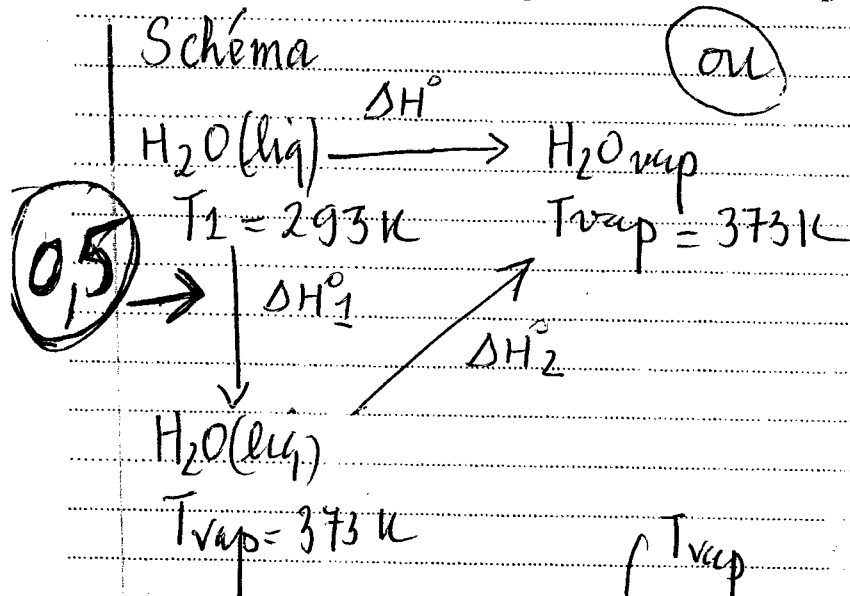 Schéma
ou
ΔH°
H₂O(liq) → H₂O vap
T1 = 293K
Tvap = 373K
0,5
ΔH°1
ΔH°2
H₂O(liq)
Tvap = 373 K
Tvap